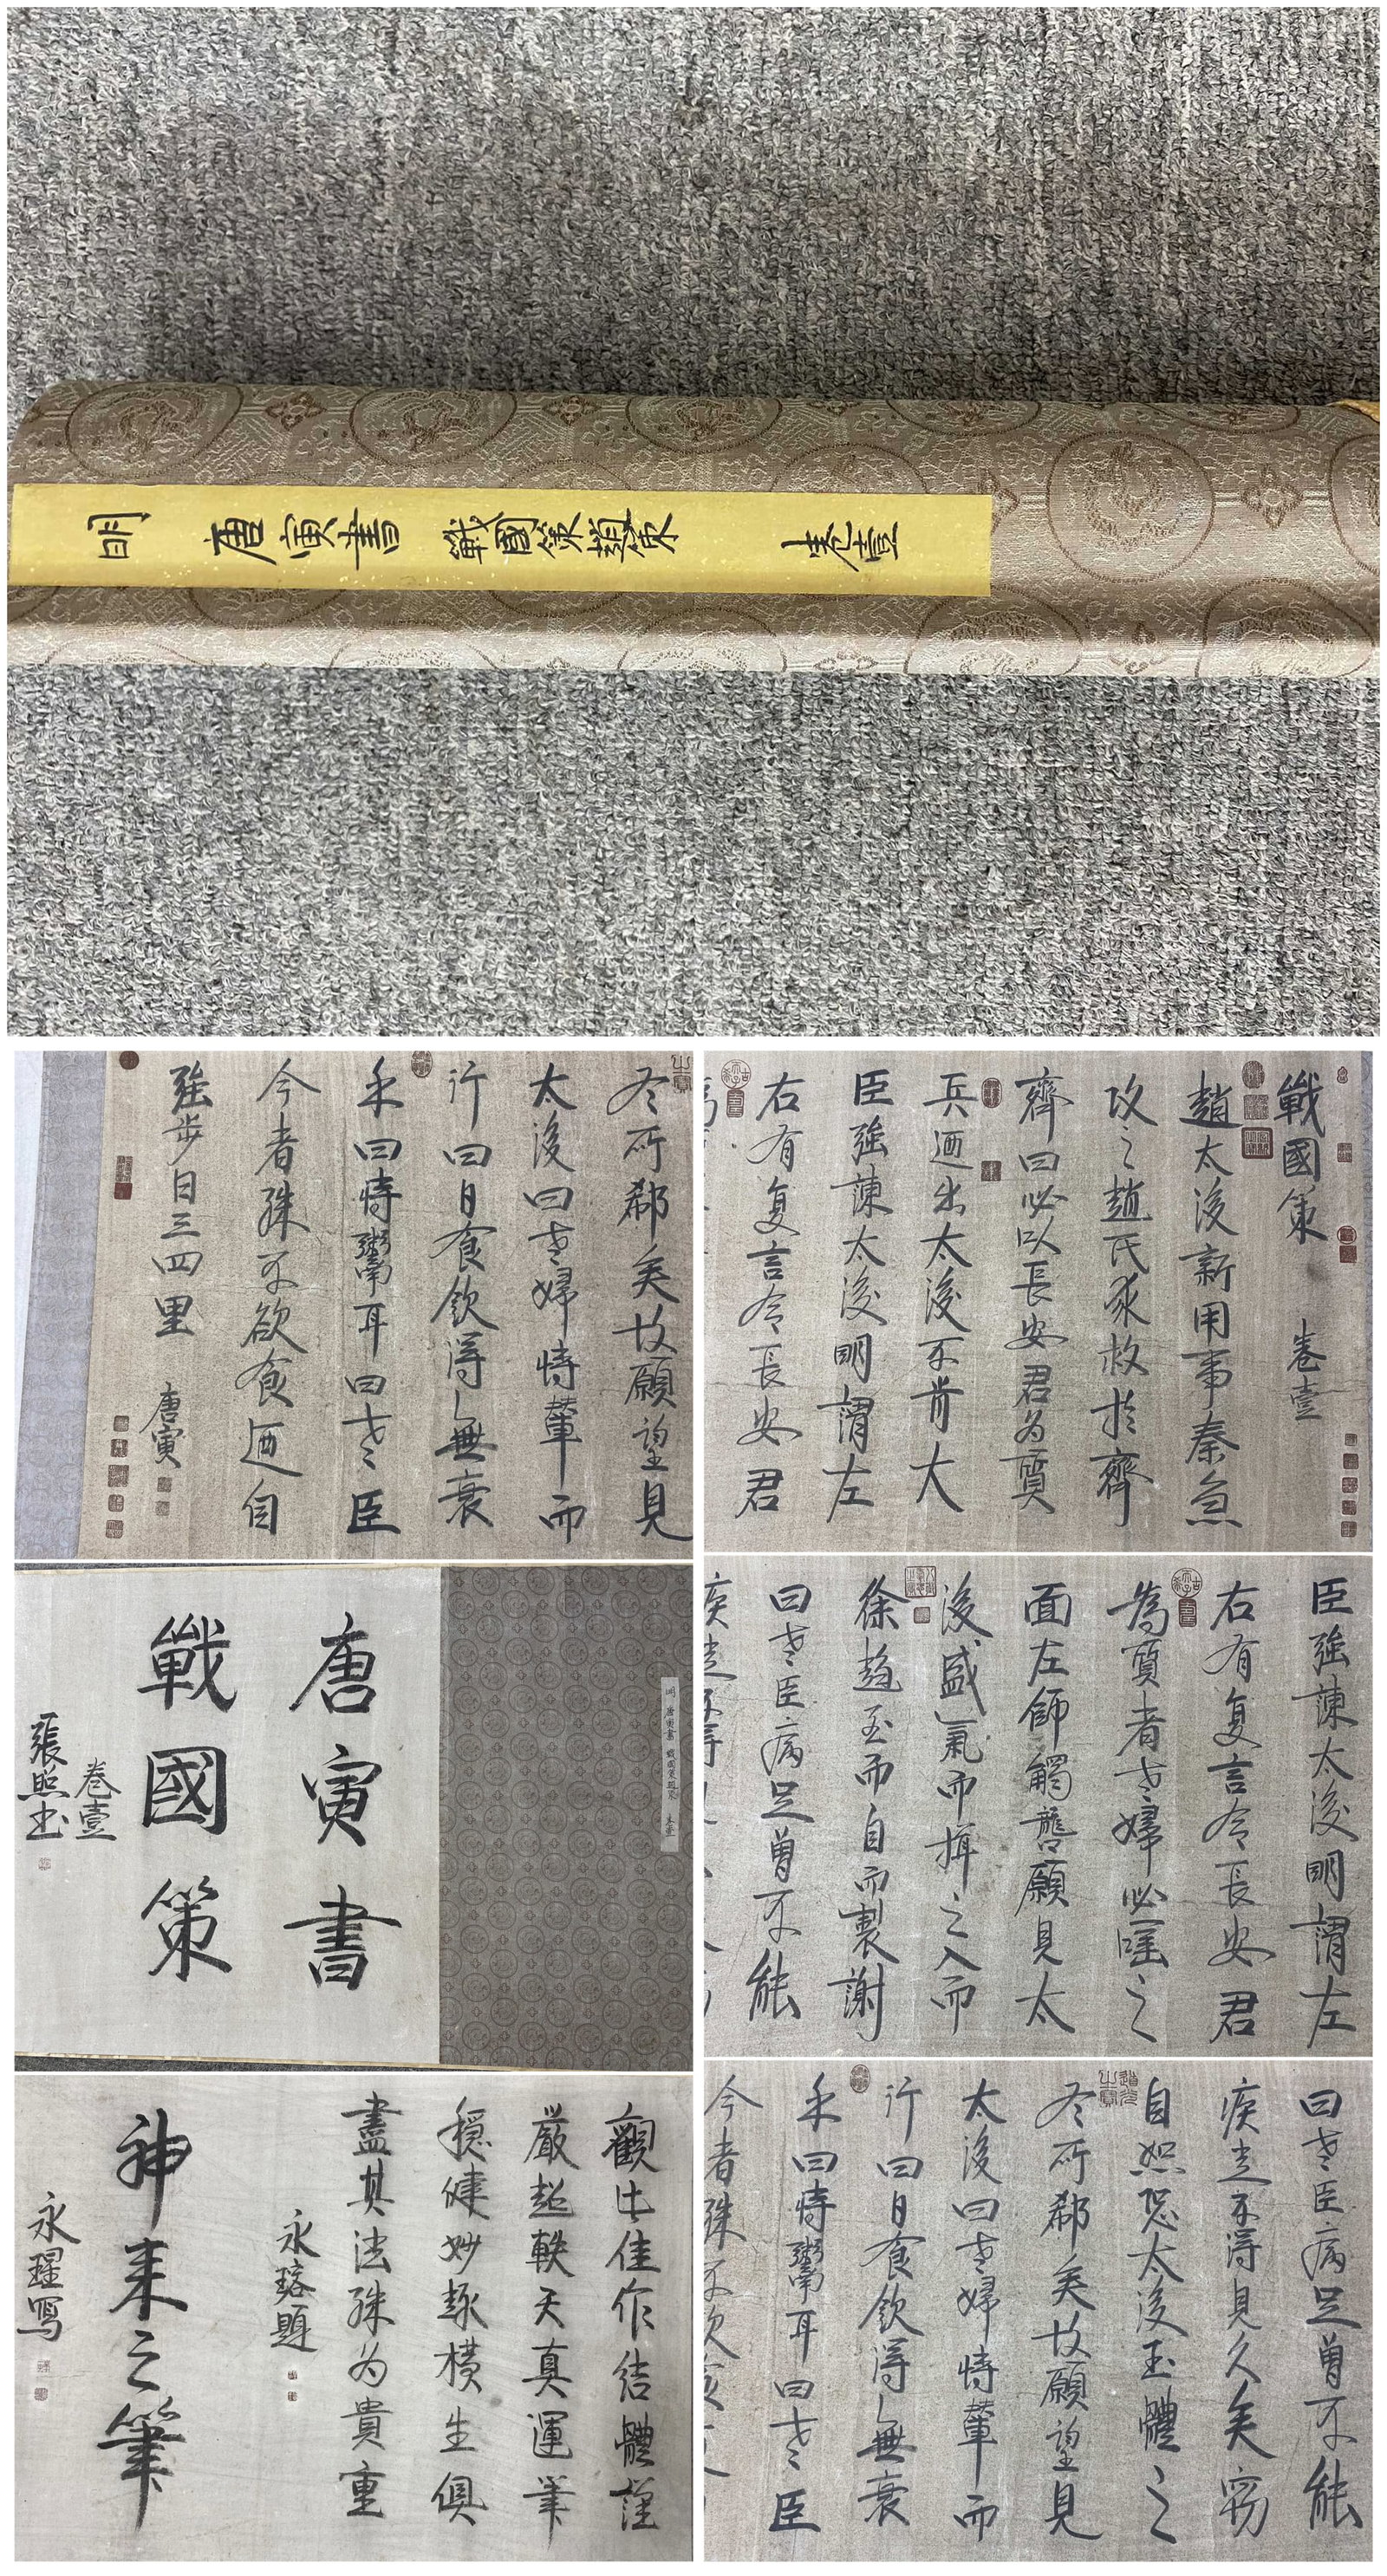 明 唐寅書 戰國策趙策 卷壹
戰國策 卷壹
趙太後新用事秦急
攻之趙氏求救於齊
齊曰必以長安君為質
兵迺出太後不肯大
臣強諫太後明謂左
右有复言令長安君
冬所郄矣故願望見
太後曰老婦恃輦而
行曰日食飲得無衰
乎曰恃鬻耳曰老臣
今者殊不欲食迺自
強步日三四里 唐寅
臣強諫太後明謂左
右有复言令長安君
為質者老婦必唾之
面左師觸讋願見太
後盛氣而揖之入而
徐趨至而自而製謝
曰老臣病足曾不能
疾走不得見
明 唐寅書 戰國策趙策 卷壹
唐寅書
戰國策
卷壹
張照書
曰老臣病足曾不能
疾走不得見久矣竊
自恕恐太後玉體之
冬所郄矣故願望見
太後曰老婦恃輦而
行曰日食飲得無衰
乎曰恃鬻耳曰老臣
今者殊不欲食
觀此佳作結體謹
嚴超軼天真運筆
穩健妙趣橫生俱
盡其法殊為貴重
永瑢題
神來之筆
永瑆寫